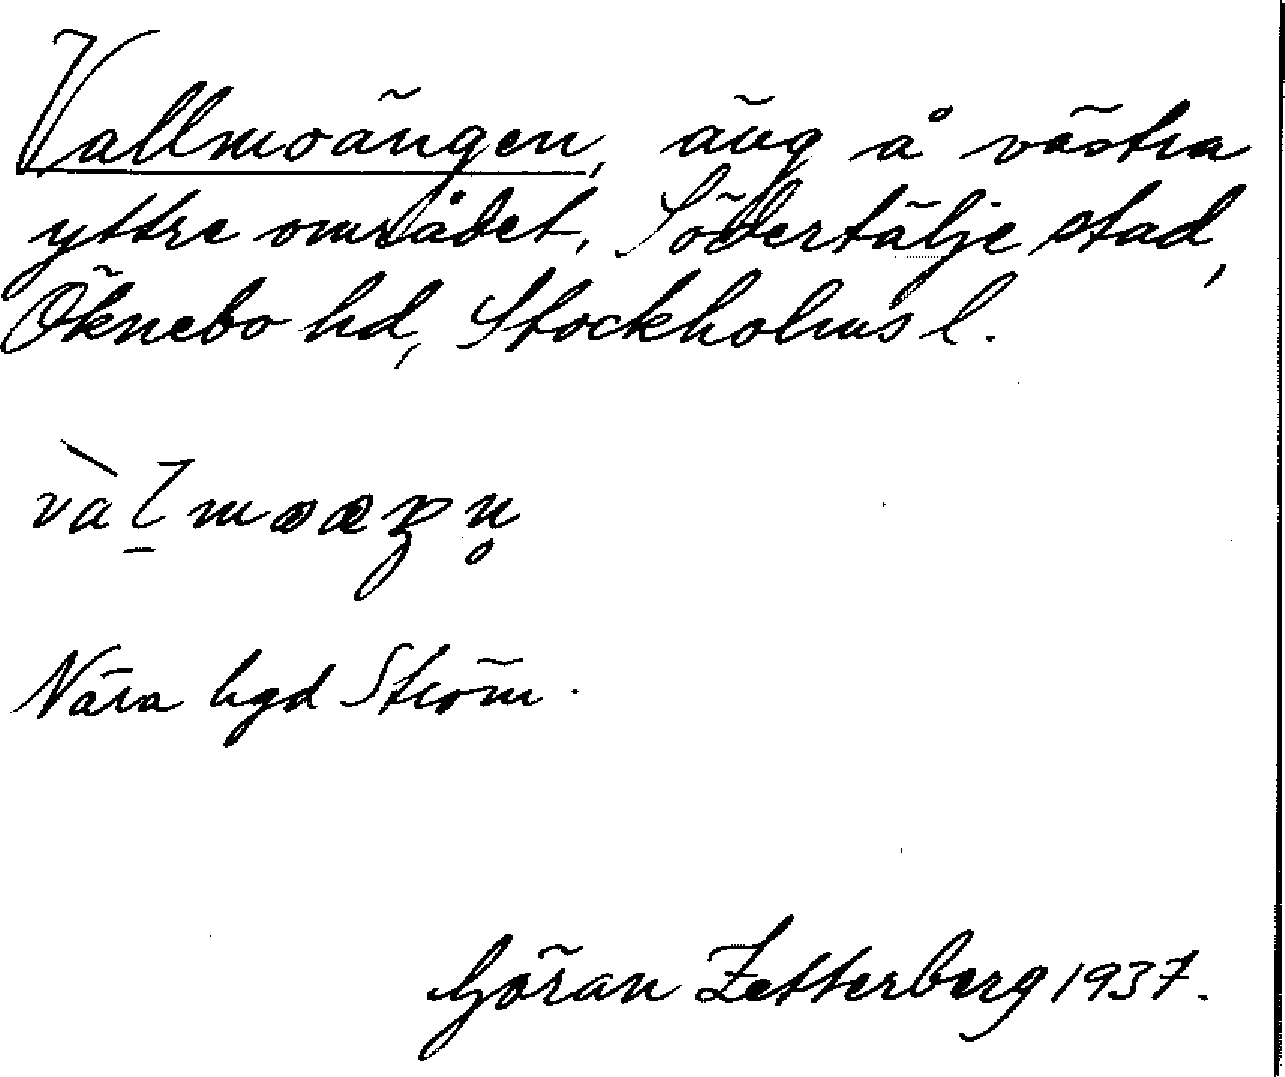 Vallmoängen, äng å västra
yttre området, Södertälje stad,
Öknebo hd, Stockholms l.
Nära hgd Ström.
Göran Zetterberg 1937.